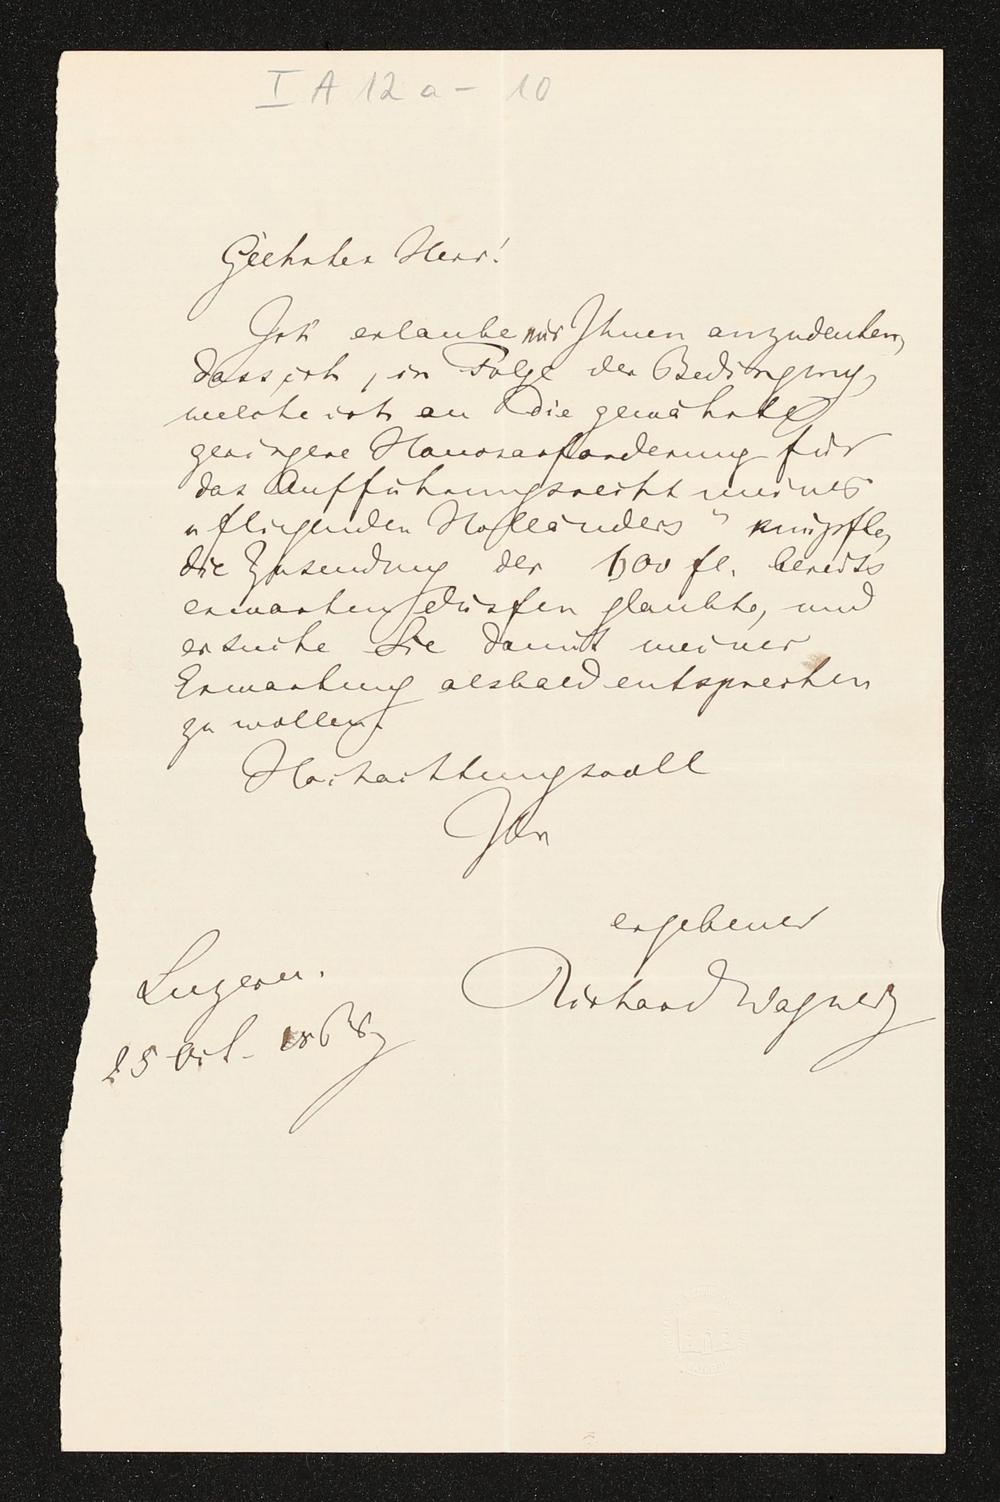 I A 12 a - 10
Geehrter Herr!
Ich erlaube mir Ihnen anzudeuten,
dass ich, in Folge der Bedingung,
welche ich an die gewährte
geringere Honorarforderung für
das Aufführungsrecht meines
"fliegenden Holländers" knüpfte,
die Zusendung der 100 fl. bereits
erwarten dürfen glaubte, und
ersuche Sie damit meiner
Erwartung alsbald entsprechen
zu wollen.
Hochachtungsvoll
Ihr
ergebener
Richard Wagner
Luzern.
25 Oct.